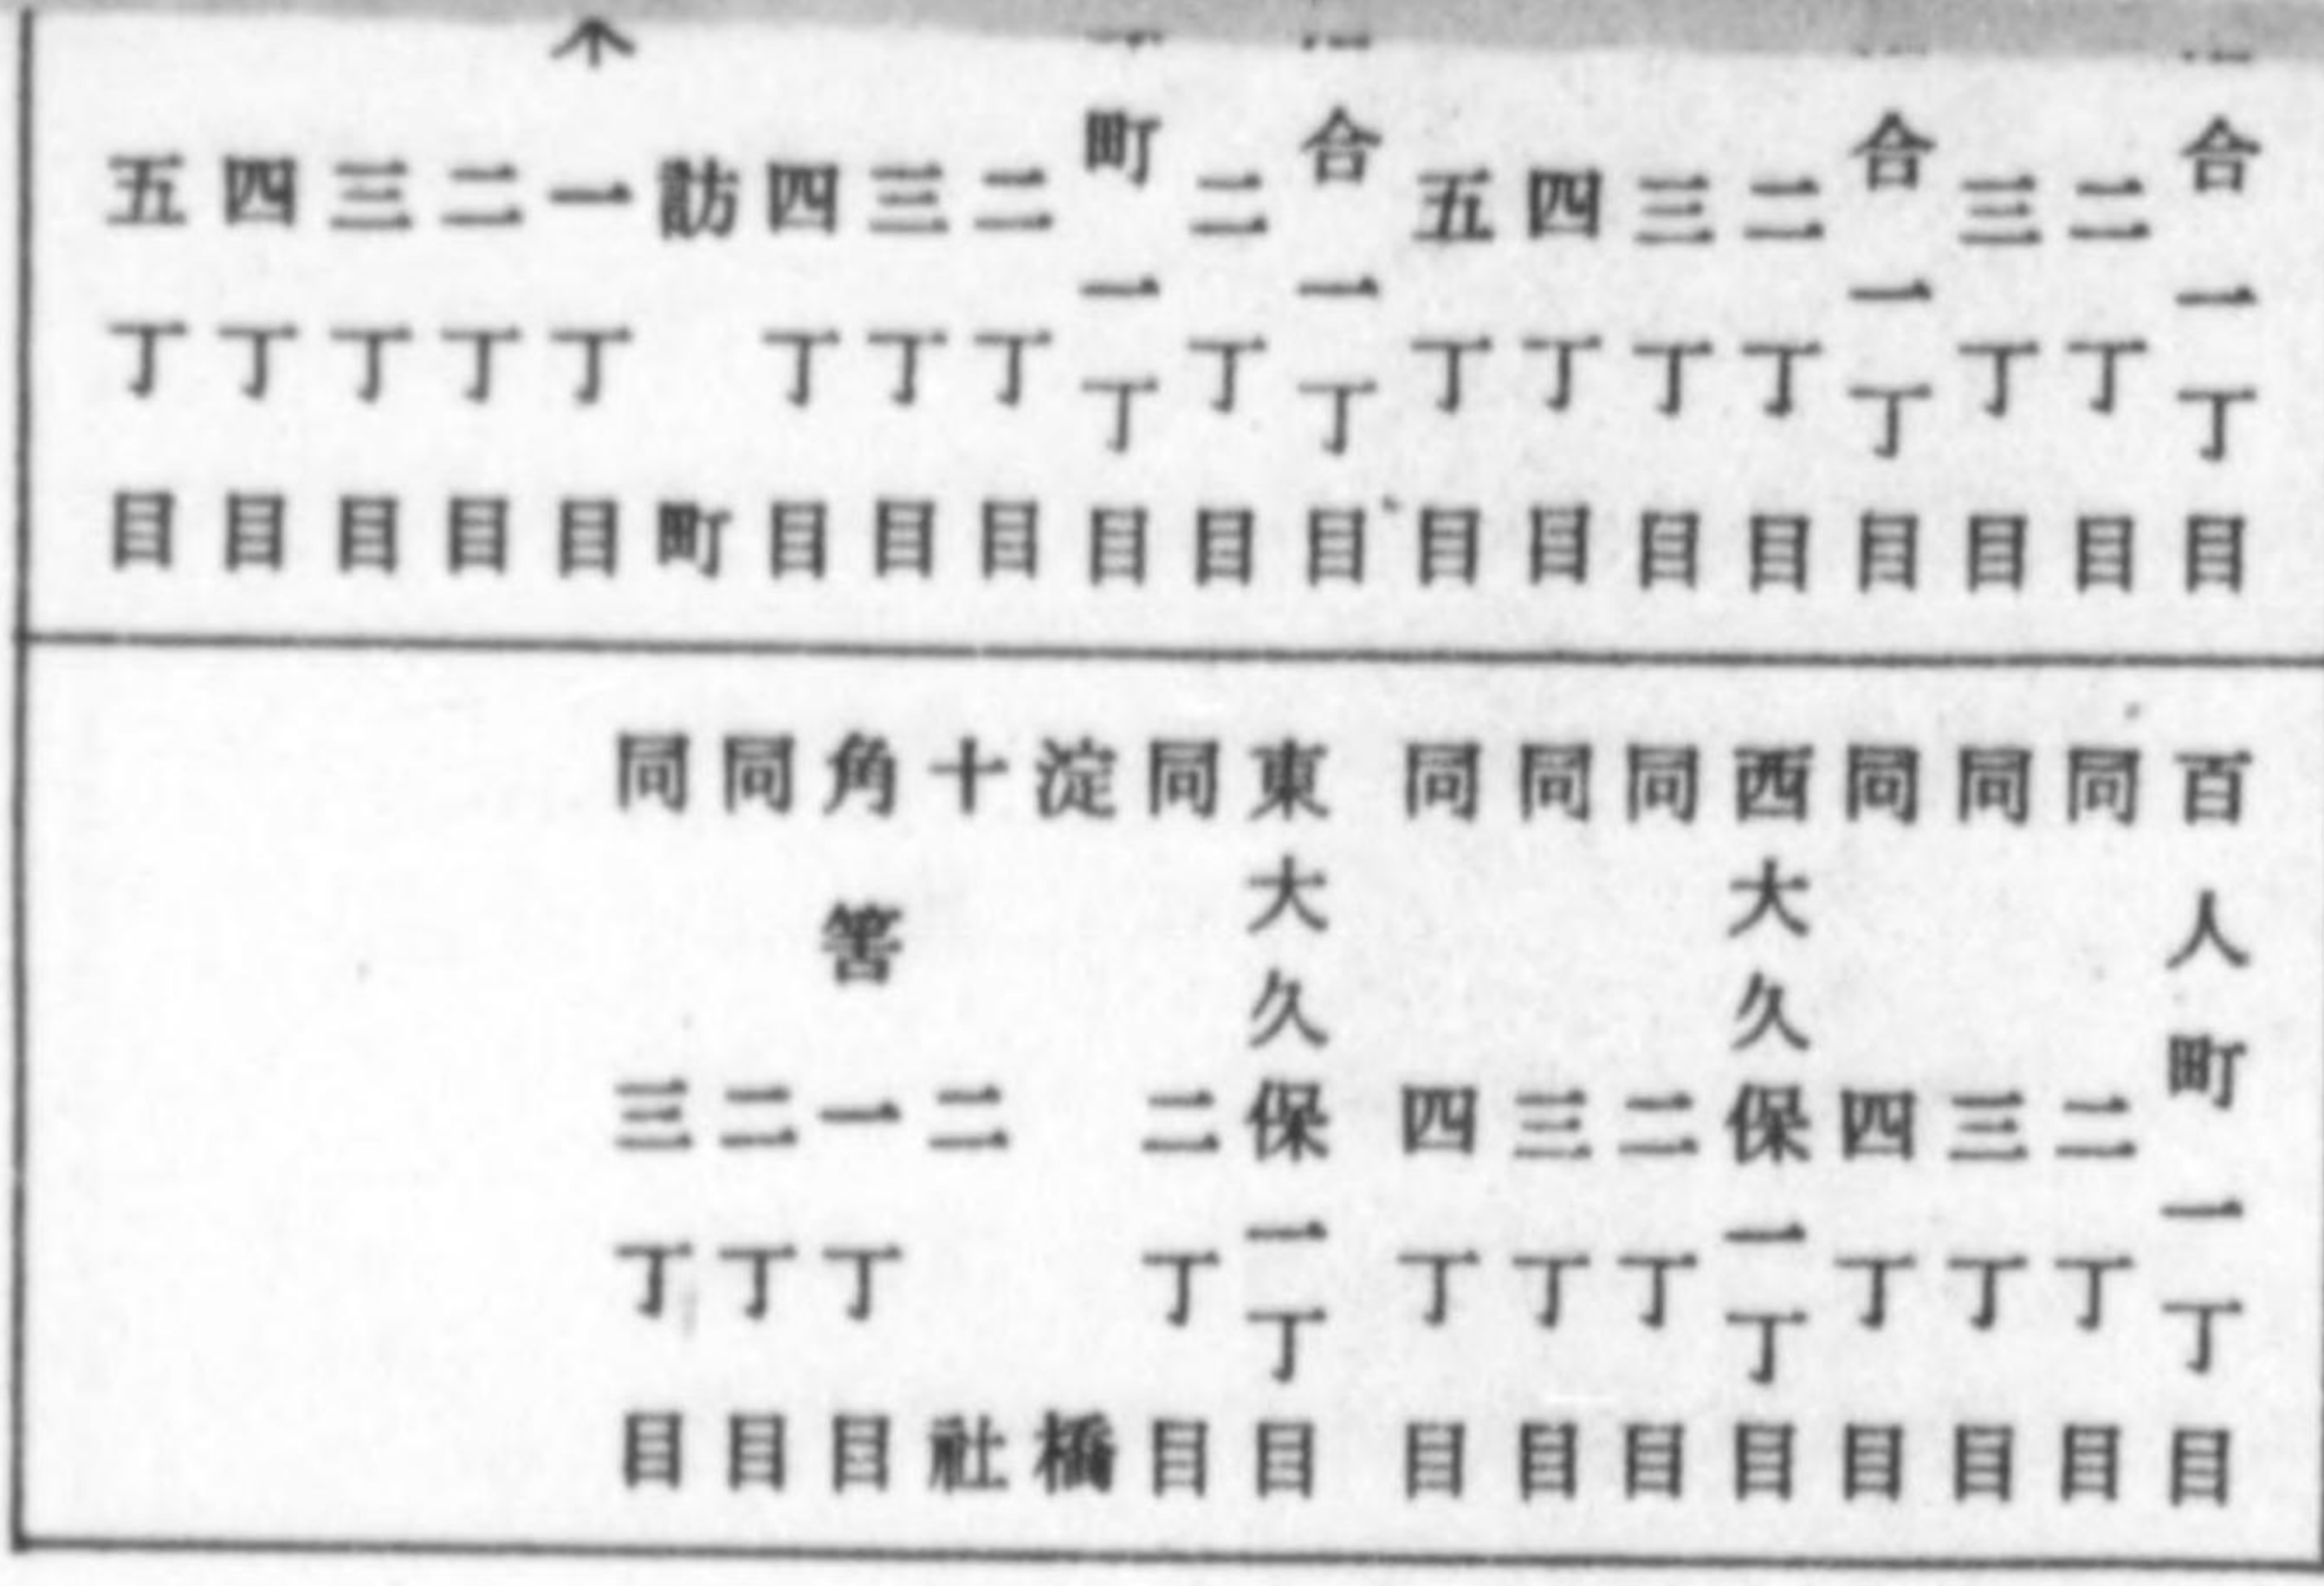 合一丁目
二丁目
三丁目
合一丁目
二丁目
三丁目
四丁目
五丁目
合一丁目
二丁目
町一丁目
二丁目
三丁目
四丁目
訪町
一丁目
二丁目
三丁目
四丁目
五丁目
百人町一丁目
同二丁目
同三丁目
同四丁目
西大久保一丁目
同二丁目
同三丁目
同四丁目
東大久保一丁目
同二丁目
淀橋
十二社
角筈一丁目
同二丁目
同三丁目